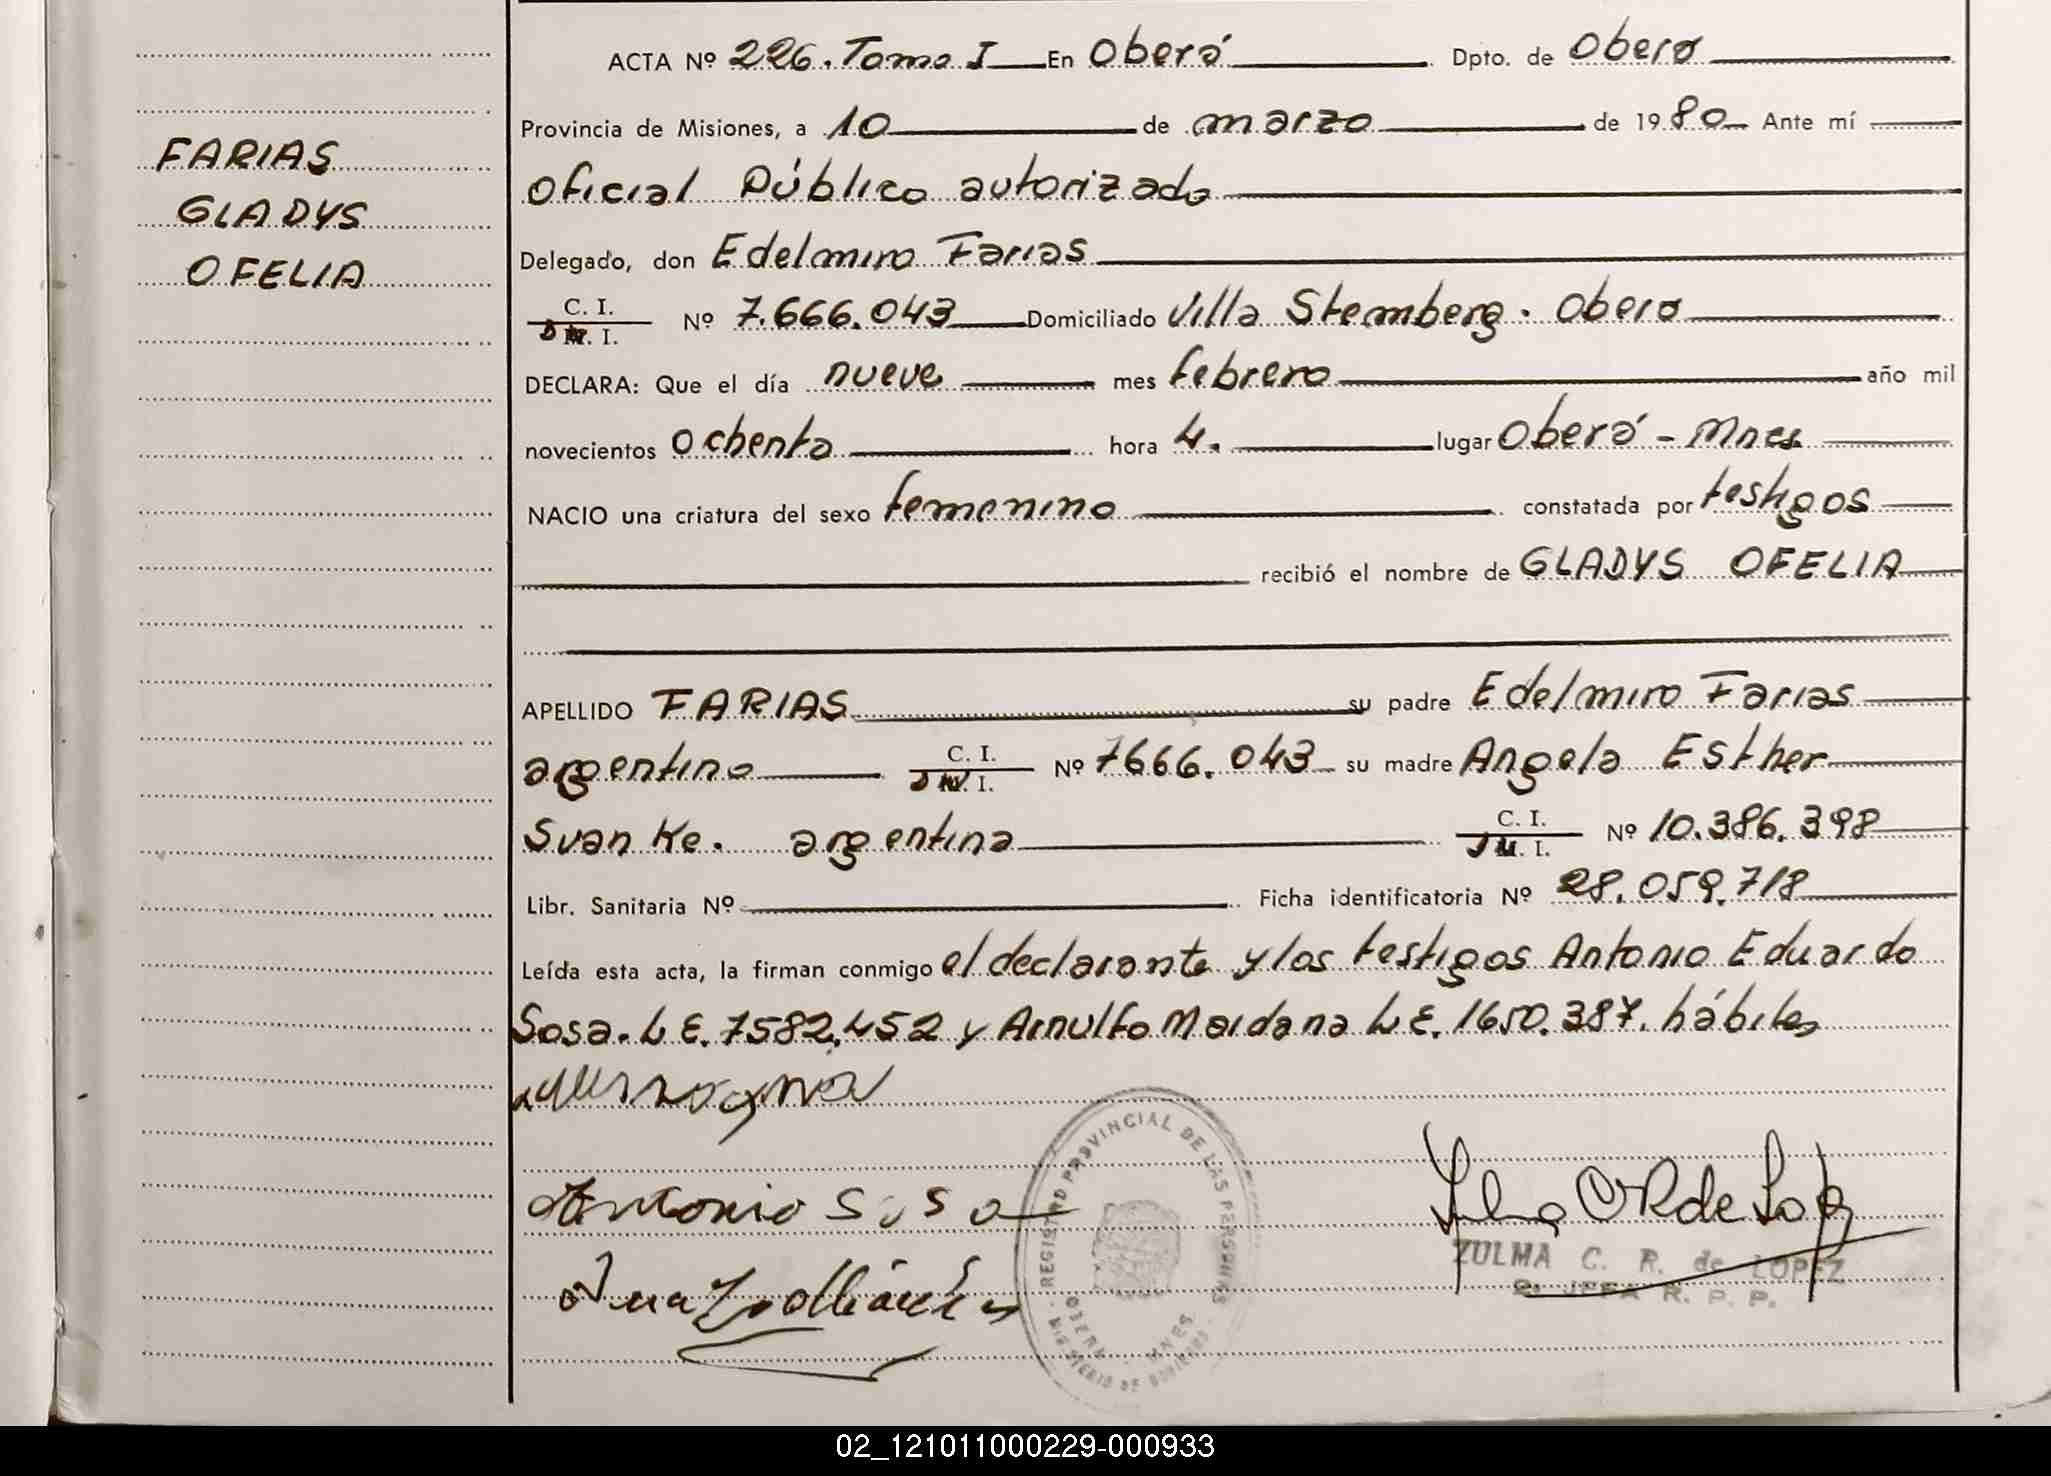 FARIAS
GLADYS
OFELIA
ACTA Nº 226. Tomo I En Oberá Dpto. de Obera
Provincia de Misiones, a 10 de marzo de 1980 Ante mí
Oficial Público autorizado
Delegado, don Edelmiro Farias
C. I.
D M. I. Nº 7.666.043 Domiciliado Villa Stemberg. Obera
DECLARA: Que el día nueve mes febrero año mil
novecientos Ochenta hora 4. lugar Oberá - Mnes
NACIO una criatura del sexo femenino constatada por testigos
recibió el nombre de GLADYS OFELIA
APELLIDO FARIAS su padre Edelmiro Farias
argentino C. I. D M. I. Nº 7666.043 su madre Angela Esther
Svan Ke. argentina C. I. D M. I. Nº 10.386.398
Libr. Sanitaria Nº Ficha identificatoria Nº 28.059.718
Leída esta acta, la firman conmigo el declarante y los testigos Antonio Eduardo
Sosa. L E. 7582.452 y Arnulfo Maidana L E. 1650.387. hábiles
Antonio Sosa
REGISTRO PROVINCIAL DE LAS PERSONAS
OBERA - MNES
MINISTERIO DE GOBIERNO
ZULMA C. R. de LOPEZ
2º JEFA R. P. P.
02_121011000229-000933